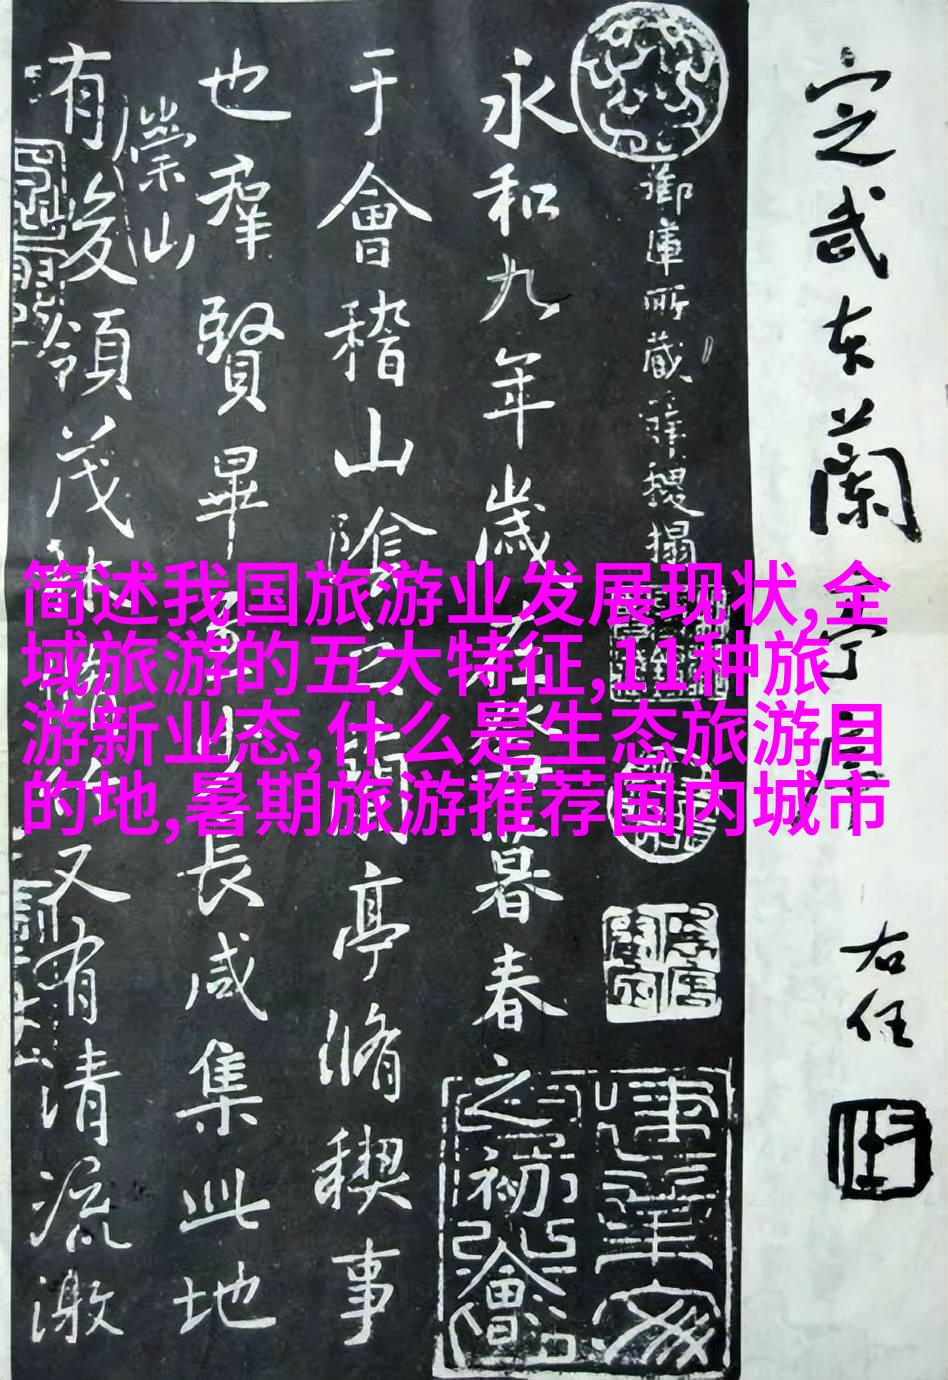 定武蘭亭序
右任
御庫所藏薛稷搨
永和九年歲在暮春之初會
于會稽山陰之蘭亭脩稧事
也羣賢畢至少長咸集此地
崇山
有峻領茂林脩竹又有清流激
简述我国旅游业发展现状,全
域旅游的五大特征,11种旅
游新业态,什么是生态旅游目
的地,暑期旅游推荐国内城市